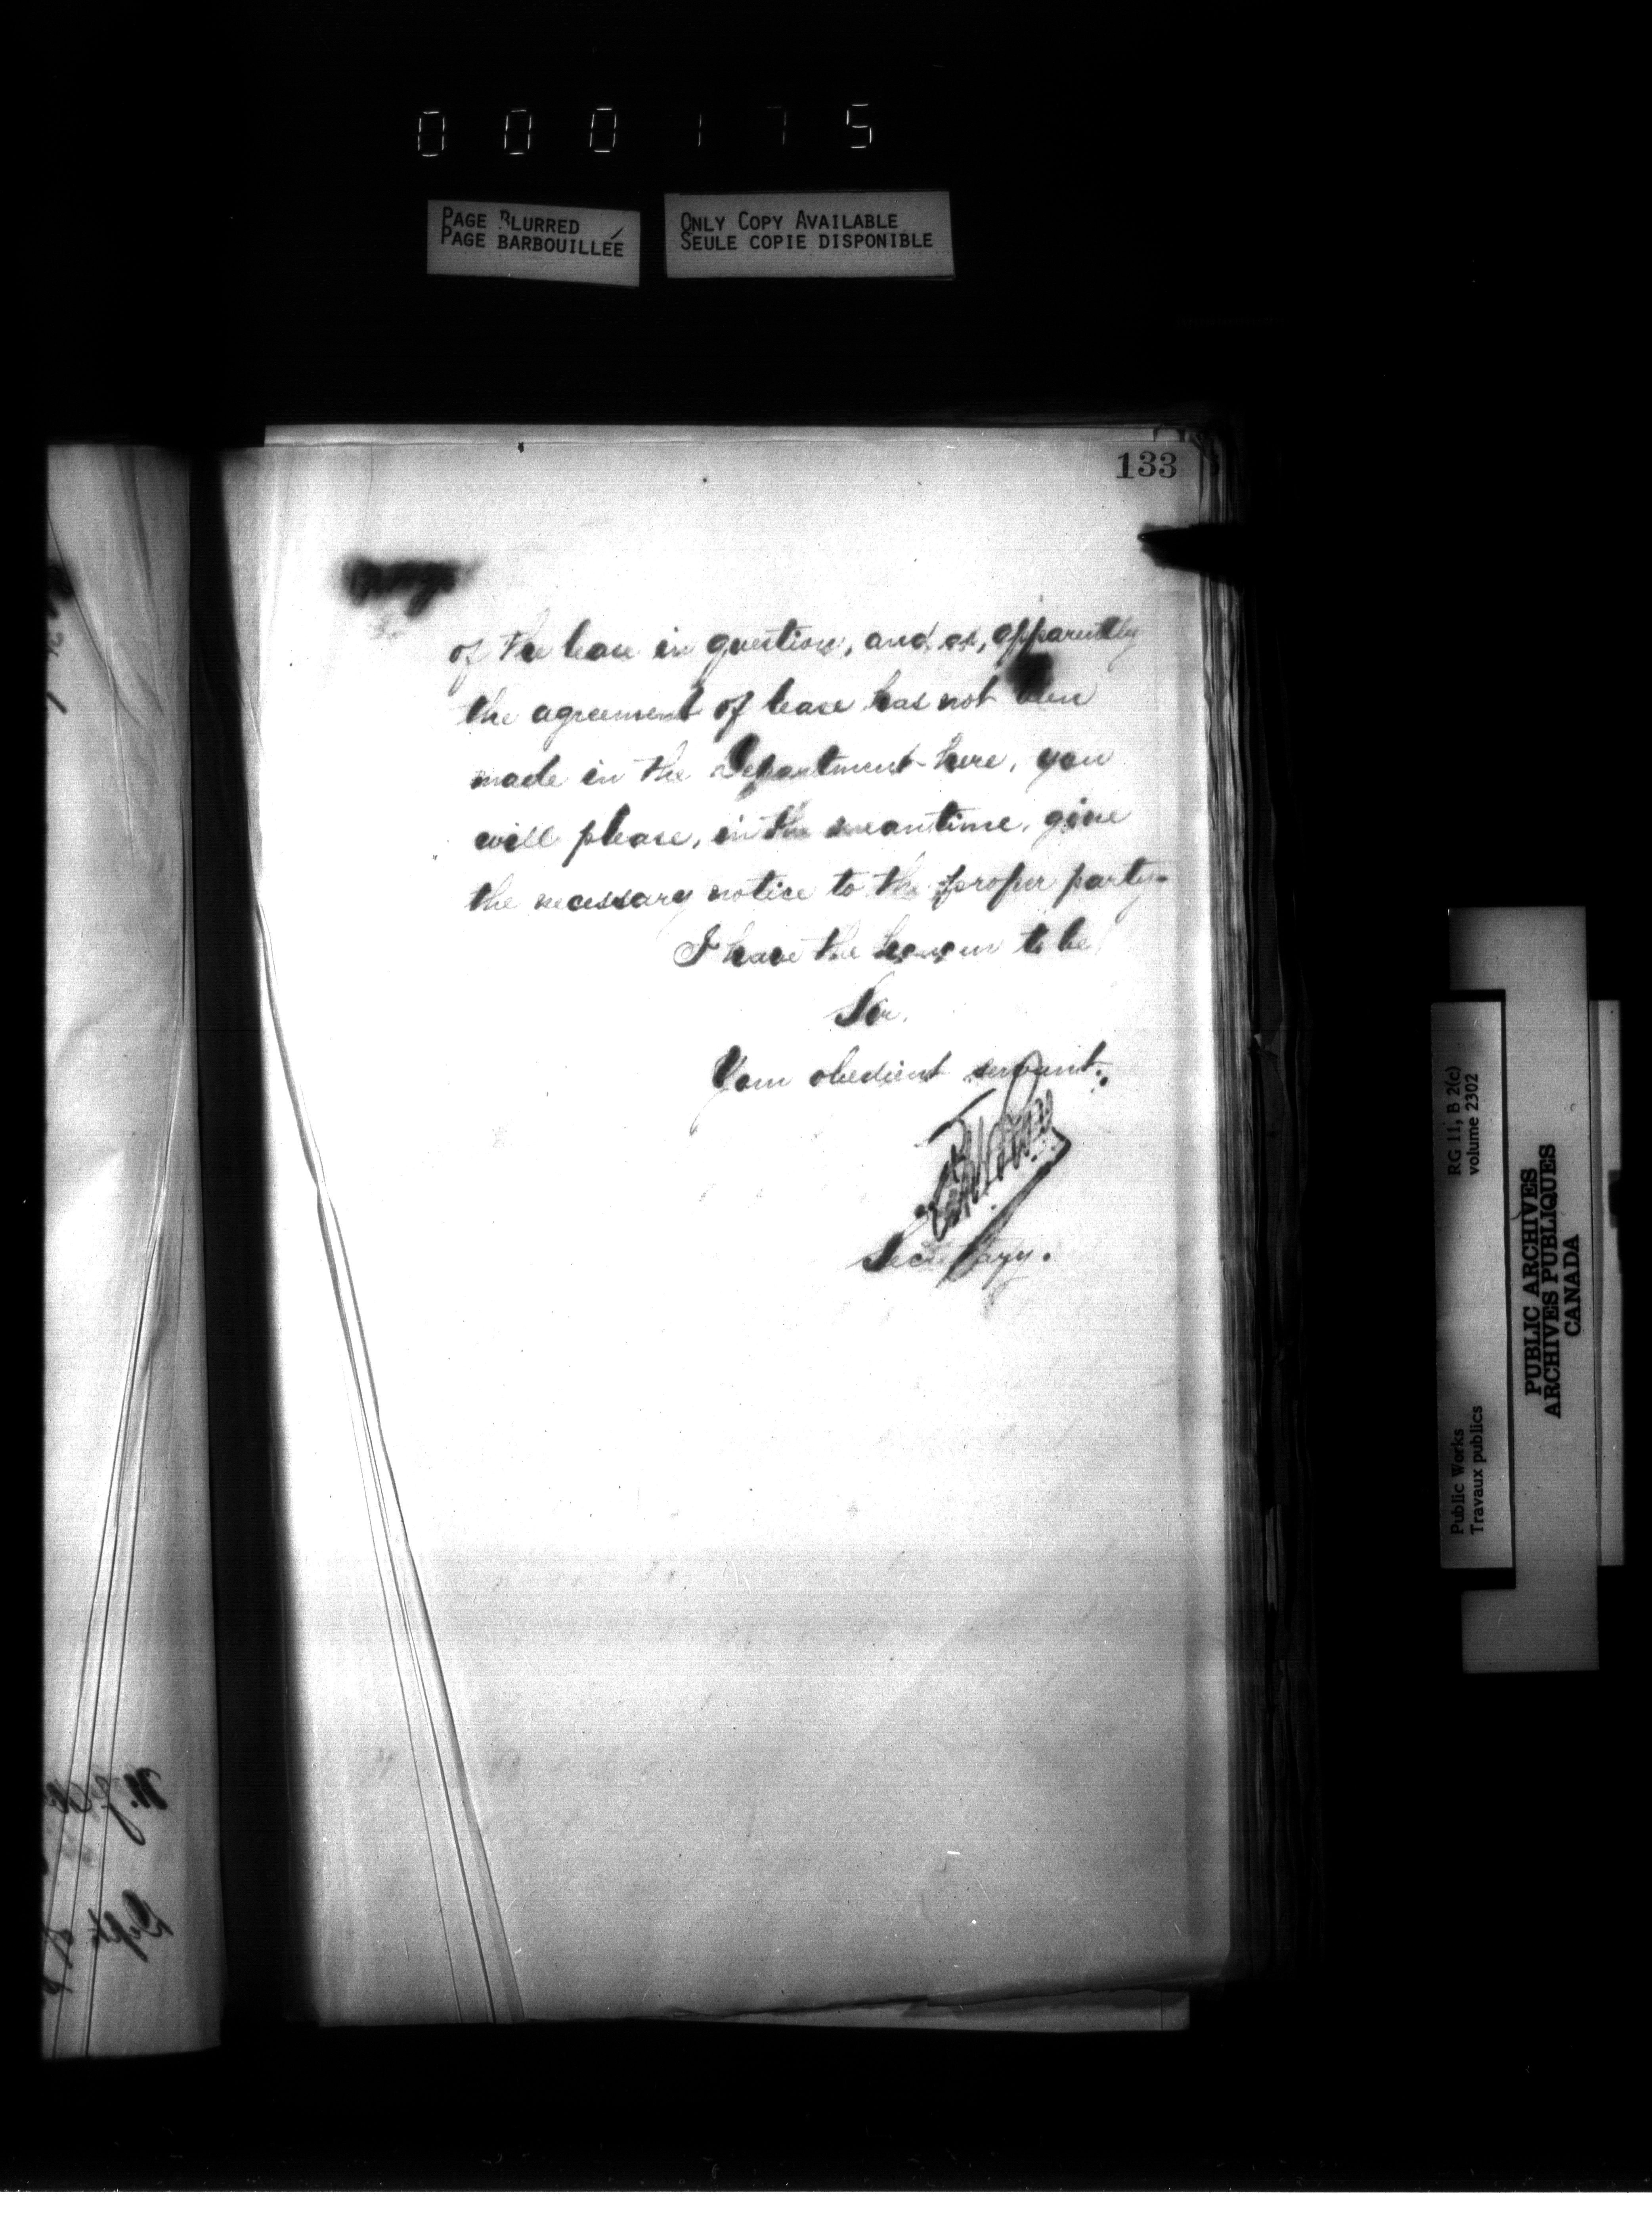 000175
PAGE BLURRED
PAGE BARBOUILLÉE
ONLY COPY AVAILABLE
SEULE COPIE DISPONIBLE
133
of the lease in question, and, as, apparently
the agreement of lease has not been
made in the Department here, you
will please, in the meantime, give
the necessary notice to the proper party.
I have the honour to be
Sir,
Your obedient servant.
Secretary.
RG 11, B 2(c)
volume 2302
Public Works
Travaux publics
PUBLIC ARCHIVES
ARCHIVES PUBLIQUES
CANADA